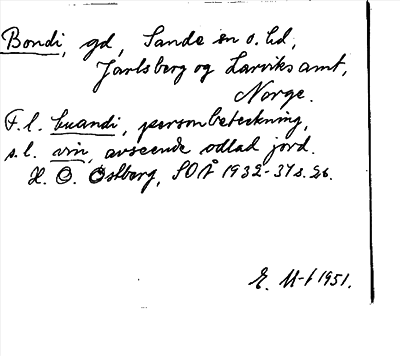 Bondi, gd, Sande sn o. hd,
Jarlsberg og Larviks amt,
Norge.
F.l. buandi, personbeteckning,
s.l. vin, avseende odlad jord.
H. O. Östberg, SOÅ 1932-37 s. 26.
E. M-t 1951.